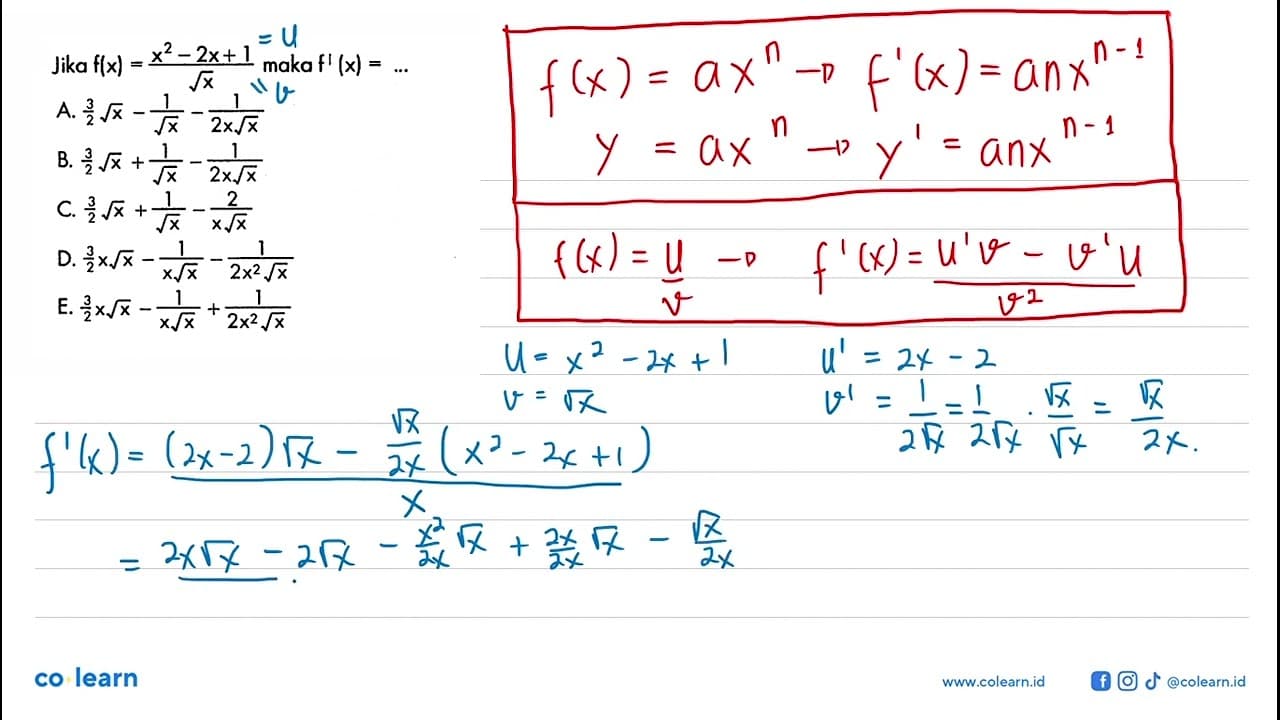 Jika f(x) = (x² – 2x + 1)/√x maka f'(x) = ...
= u
" v
A. 3/2 √x – 1/√x – 1/(2x√x)
B. 3/2 √x + 1/√x – 1/(2x√x)
C. 3/2 √x + 1/√x – 2/(x√x)
D. 3/2 x√x – 1/(x√x) – 1/(2x²√x)
E. 3/2 x√x – 1/(x√x) + 1/(2x²√x)
f(x) = axⁿ → f'(x) = anxⁿ⁻¹
y = axⁿ → y' = anxⁿ⁻¹
f(x) = u/v → f'(x) = (u'v – v'u)/v²
u = x² – 2x + 1 u' = 2x – 2
v = √x v' = 1/(2√x) = 1/(2√x) . √x/√x = √x/(2x).
f'(x) = ((2x–2)√x – √x/(2x) (x² – 2x + 1))/x
= 2x√x – 2√x – x²/(2x) √x + 2x/(2x) √x – √x/(2x)
co learn
www.colearn.id
@colearn.id